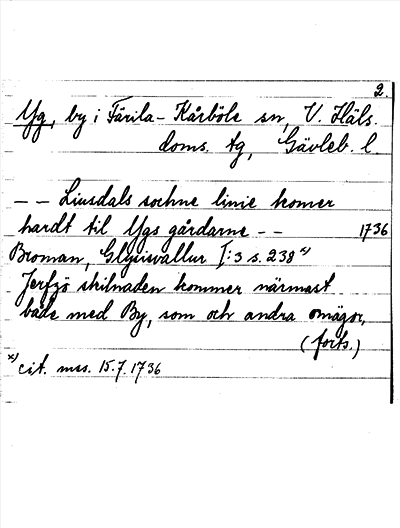 2.
Yg, by i Färila-Kårböle sn, V. Häls.
doms. tg, Gävleb. l.
-- Liusdals sochne linie komer
hardt til Ygs gårdarne -- 1736
Broman, Glysisvallur I:3 s. 238 x)
Jerfsjö skilnaden kommer närmast
både med By, som och andra omägor,
(forts.)
x) cit. mss. 15.7.1736